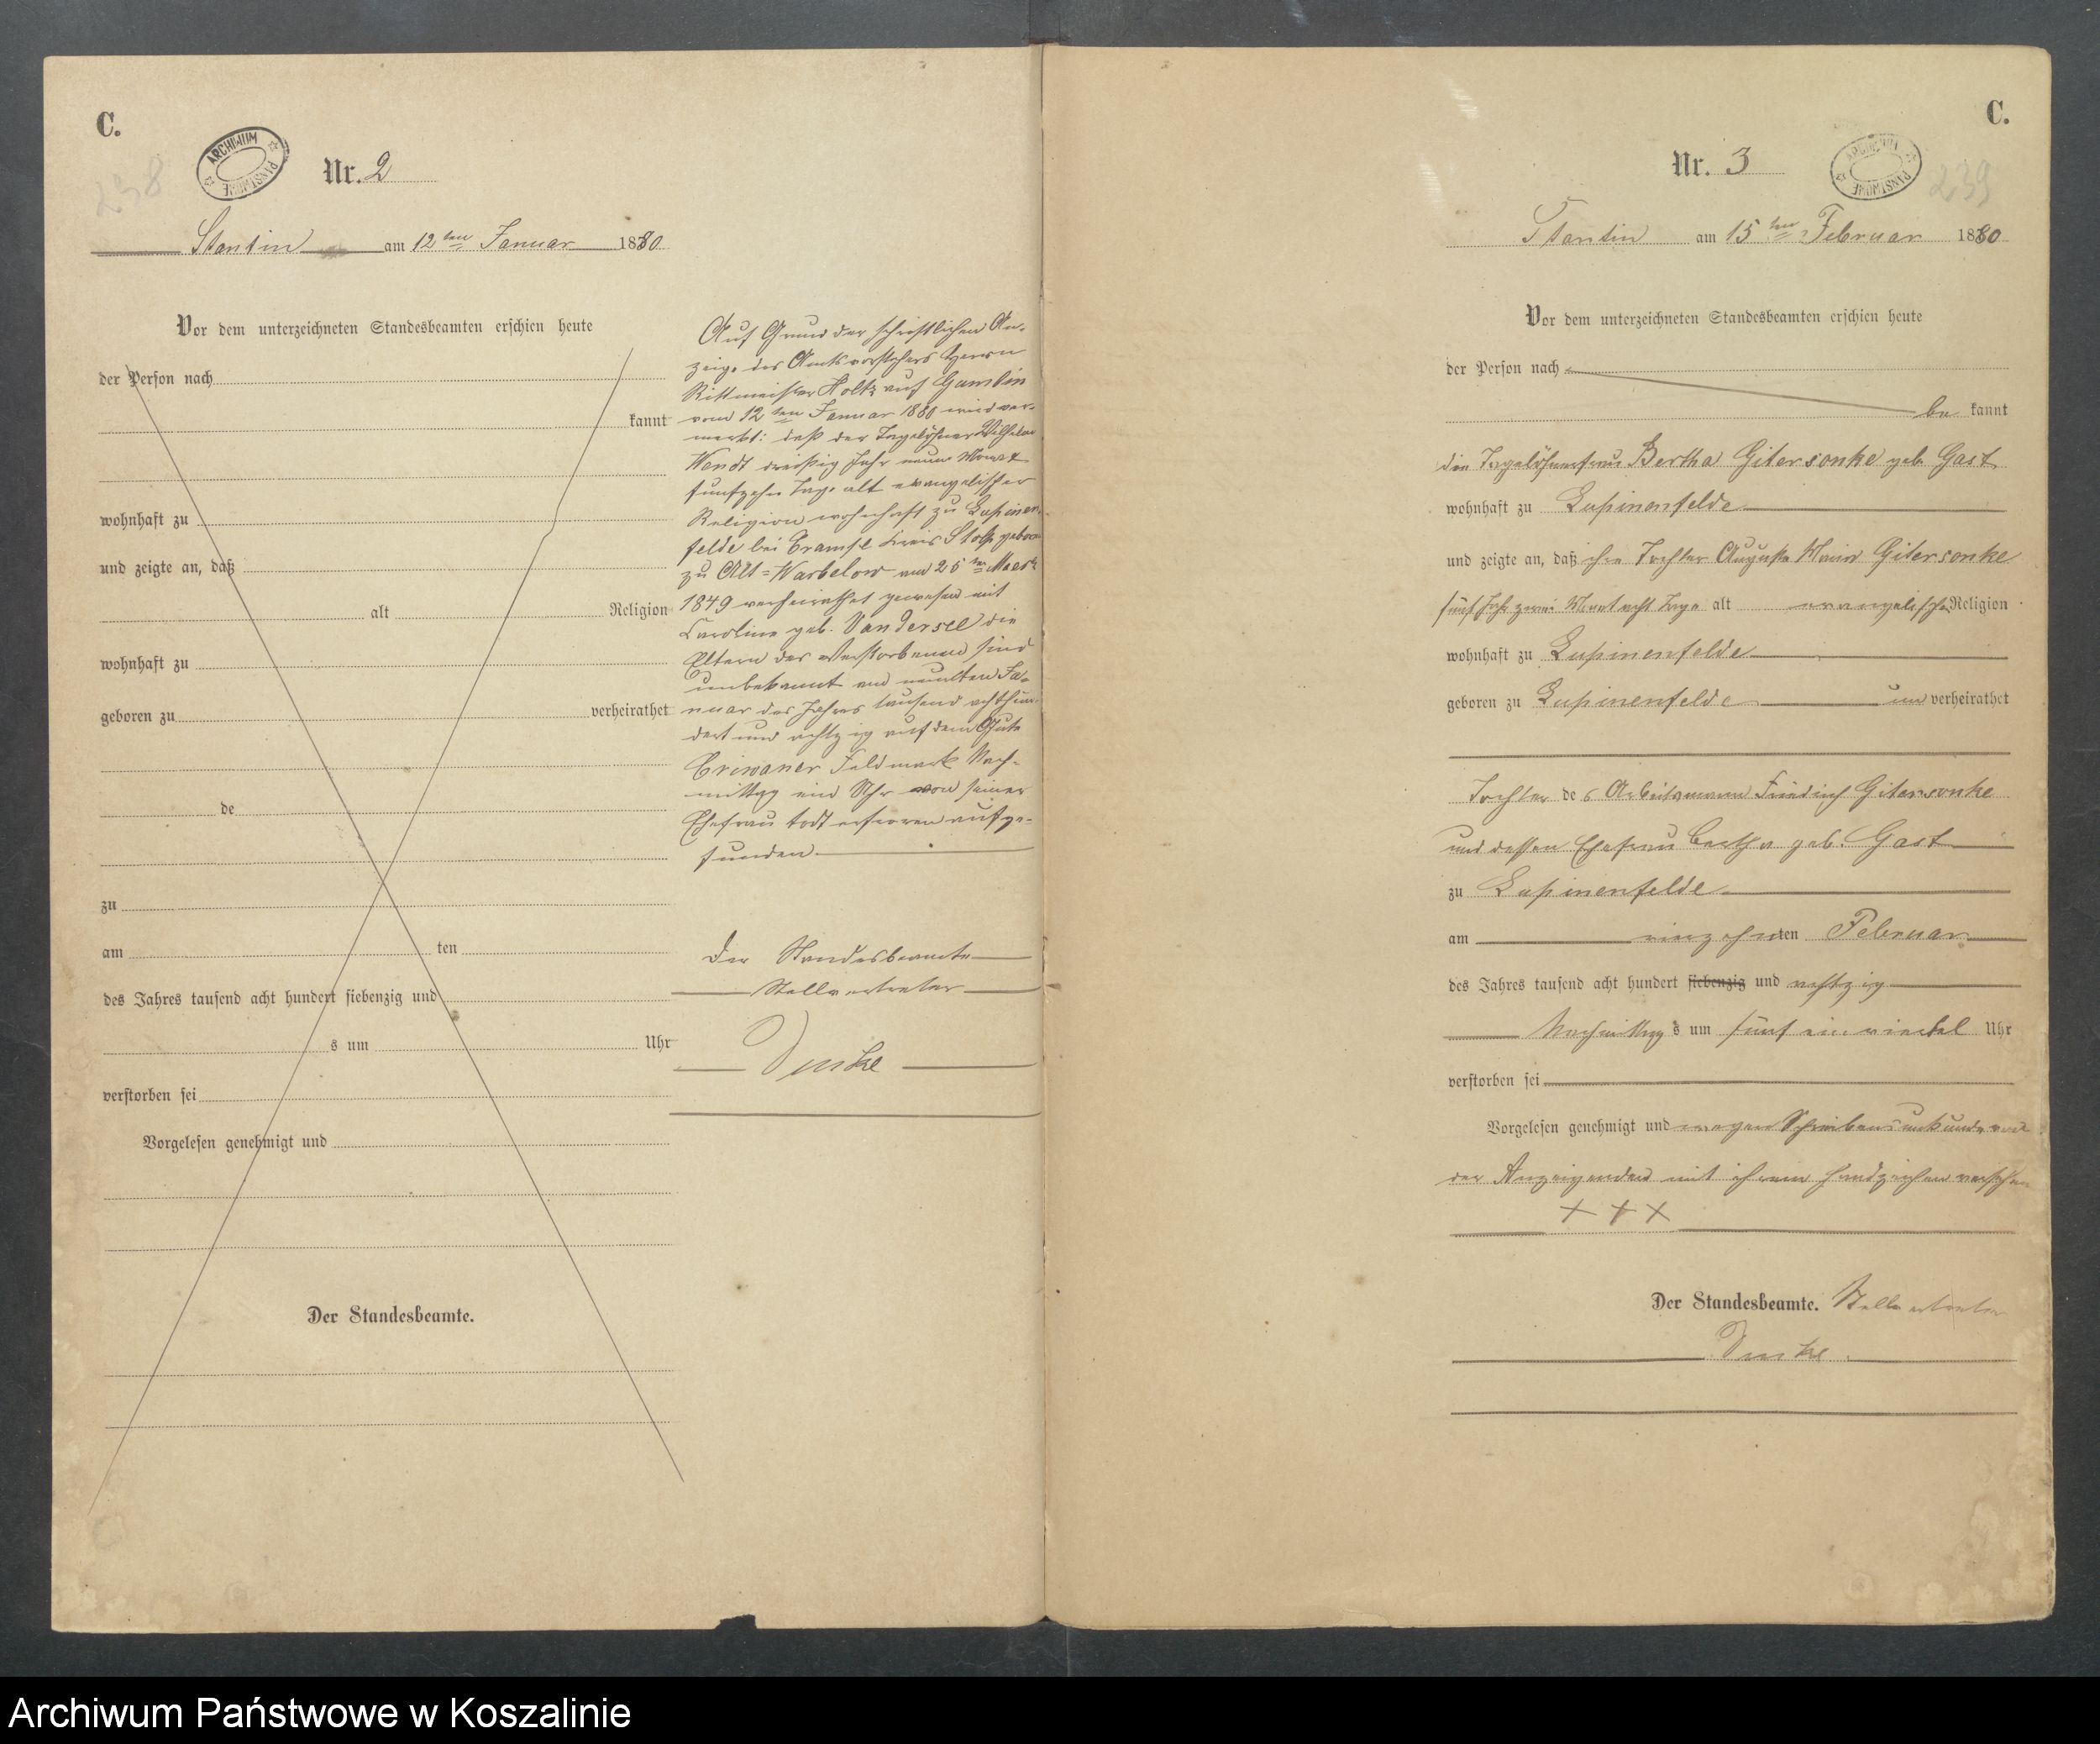 C.
238
ARCHIWUM PAŃSTWOWE
Nr. 2
Stantin am 12ten Januar 1880
Vor dem unterzeichneten Standesbeamten erschien heute
der Person nach
kannt
wohnhaft zu
und zeigte an, daß
alt Religion
wohnhaft zu
geboren zu verheirathet
de
zu
am ten
des Jahres tausend acht hundert siebenzig und
s um Uhr
verstorben sei
Vorgelesen genehmigt und
Der Standesbeamte.
Auf Grund der schriftlichen An-
zeige des Amtsvorstehers Herrn
Rittmeister Holtz auf Gambin
vom 12ten Januar 1880 wird ver-
merkt: daß der Tagelöhner Wilhelm
Wendt dreißig Jahr neun Monat
fünfzehn Tage alt evangelischer
Religion wohnhaft zu Lupinen-
felde bei Kreis Stolp geboren
zu Alt-Warbelow am 25ten Maerz
1849 verheirathet gewesen mit
Caroline geb. Vandersee die
Eltern des Verstorbenen sind
unbekannt am neunten Ja-
nuar des Jahres tausend achthun-
dert und achtzig auf dem Gute
Criwaner Feldmark Nach-
mittag ein Uhr von seiner
Ehefrau todt erfroren aufge-
funden.
Der Standesbeamte
Stellvertreter
C.
239
ARCHIWUM PAŃSTWOWE
Nr. 3
Stantin am 15ten Februar 1880
Vor dem unterzeichneten Standesbeamten erschien heute
der Person nach
be kannt
die Tagelöhnerfrau Bertha Gitersonke geb. Gast
wohnhaft zu Lupinenfelde
und zeigte an, daß ihre Tochter Auguste Marie Gitersonke
fünf Jahr zwei Monat acht Tage alt evangelischer Religion
wohnhaft zu Lupinenfelde
geboren zu Lupinenfelde un verheirathet
Tochter des Arbeitsmann Friedrich Gitersonke
und dessen Ehefrau Bertha geb. Gast
zu Lupinenfelde
am vierzehnten Februar
des Jahres tausend acht hundert siebenzig und achtzig
Nachmittags um fünf ein viertel Uhr
verstorben sei
Vorgelesen genehmigt und wegen Schreibensunkunde von
der Anzeigenden mit ihrem Handzeichen versehen
+ + +
Der Standesbeamte. Stellvertreter
Archiwum Państwowe w Koszalinie